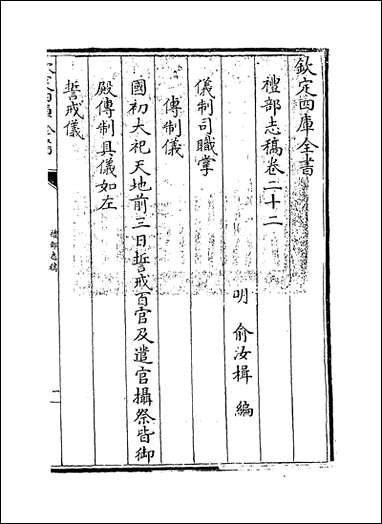 欽定四庫全書
禮部志稿卷二十二
明 俞汝楫 編
儀制司職掌
傳制儀
國初大祀天地前三日誓戒百官及遣官攝祭皆御
殿傳制具儀如左
誓戒儀
欽定四庫全書
禮部志稿